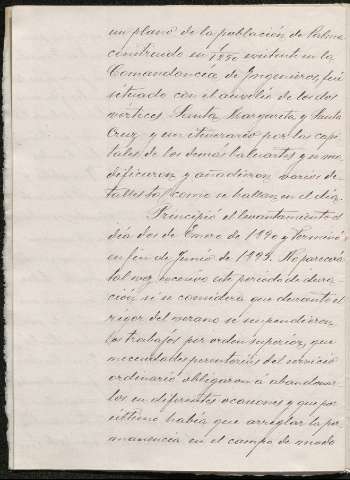 un plano de la poblacion de Palma
construido en 1880 existente en la
Comandancia de Ingenieros, fué
situado con el auxilio de los dos
vértices Santa Margarita y Santa
Cruz y un itinerario por las capi-
tales de los demás baluartes y se mo-
dificaron y añadieron varios de-
talles tal como se hallan en el dia.
Principió el levantamiento el
dia dos de Enero de 1890 y terminó
en fin de Junio de 1893. No parecerá
tal vez excesivo este periodo de dura-
ción si se considera que durante el
rigor del verano se suspendieron
los trabajos por orden superior, que
necesidades perentorias del servicio
ordinario obligaron á abandonar-
los en diferentes ocasiones y que por
último habia que arreglar la per-
manencia en el campo de modo